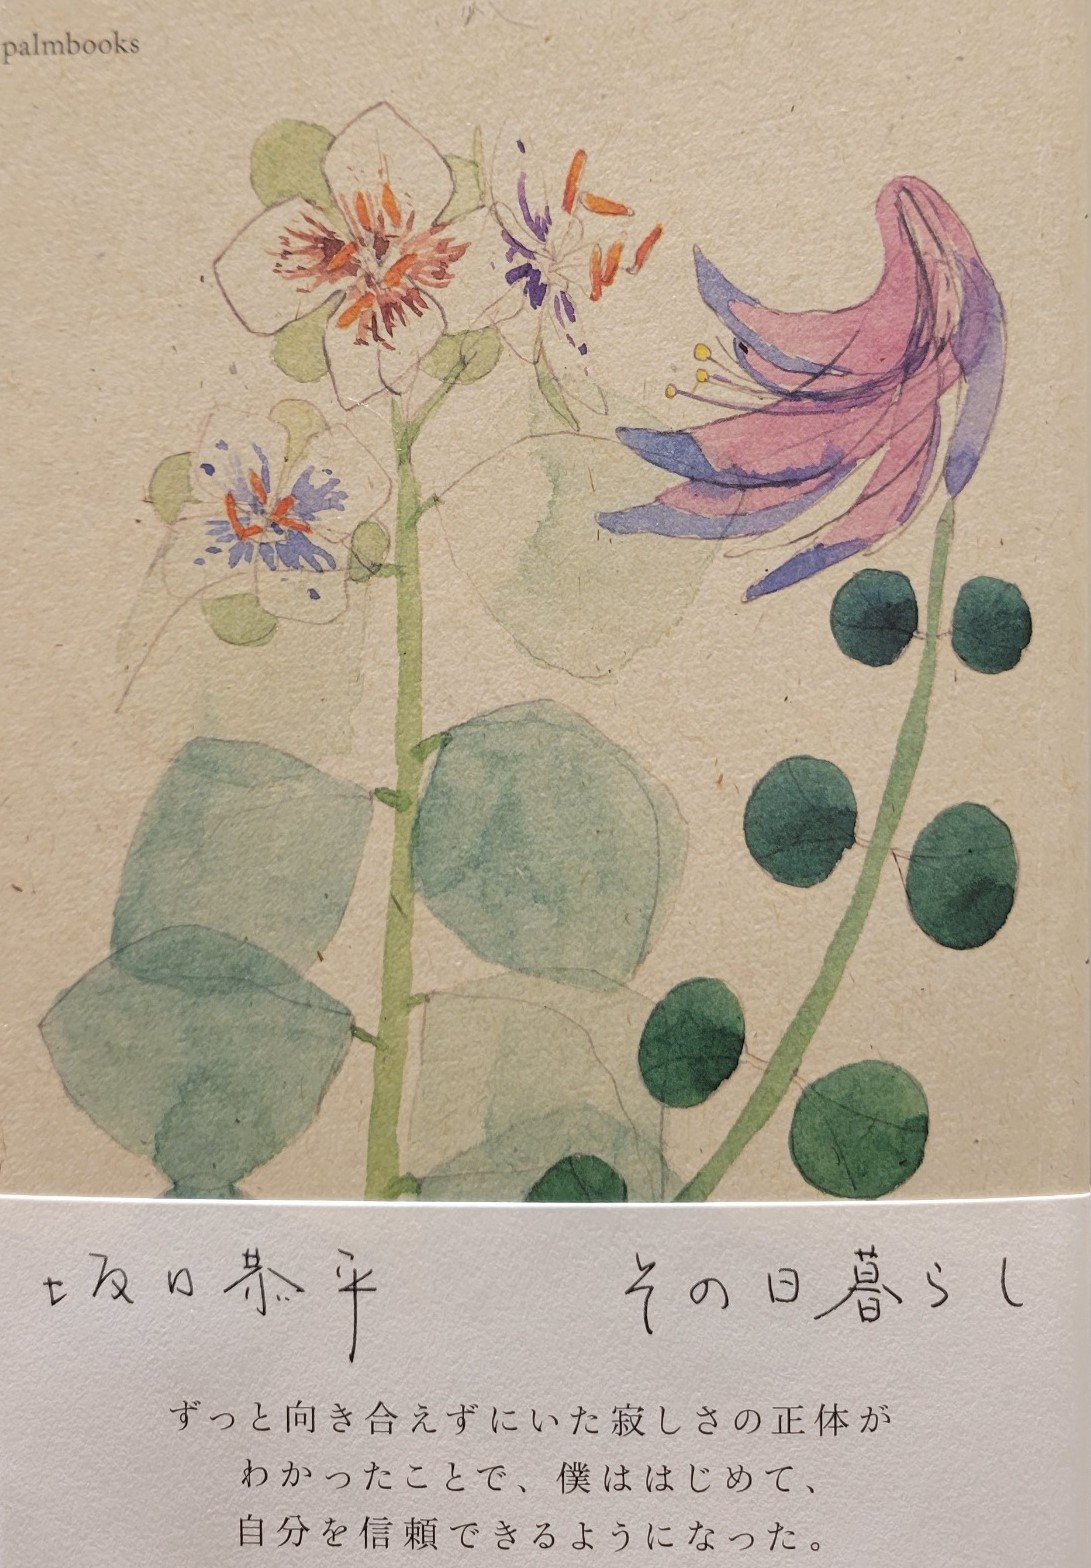 palmbooks
坂口恭平 その日暮らし
ずっと向き合えずにいた寂しさの正体が
わかったことで、僕ははじめて、
自分を信頼できるようになった。